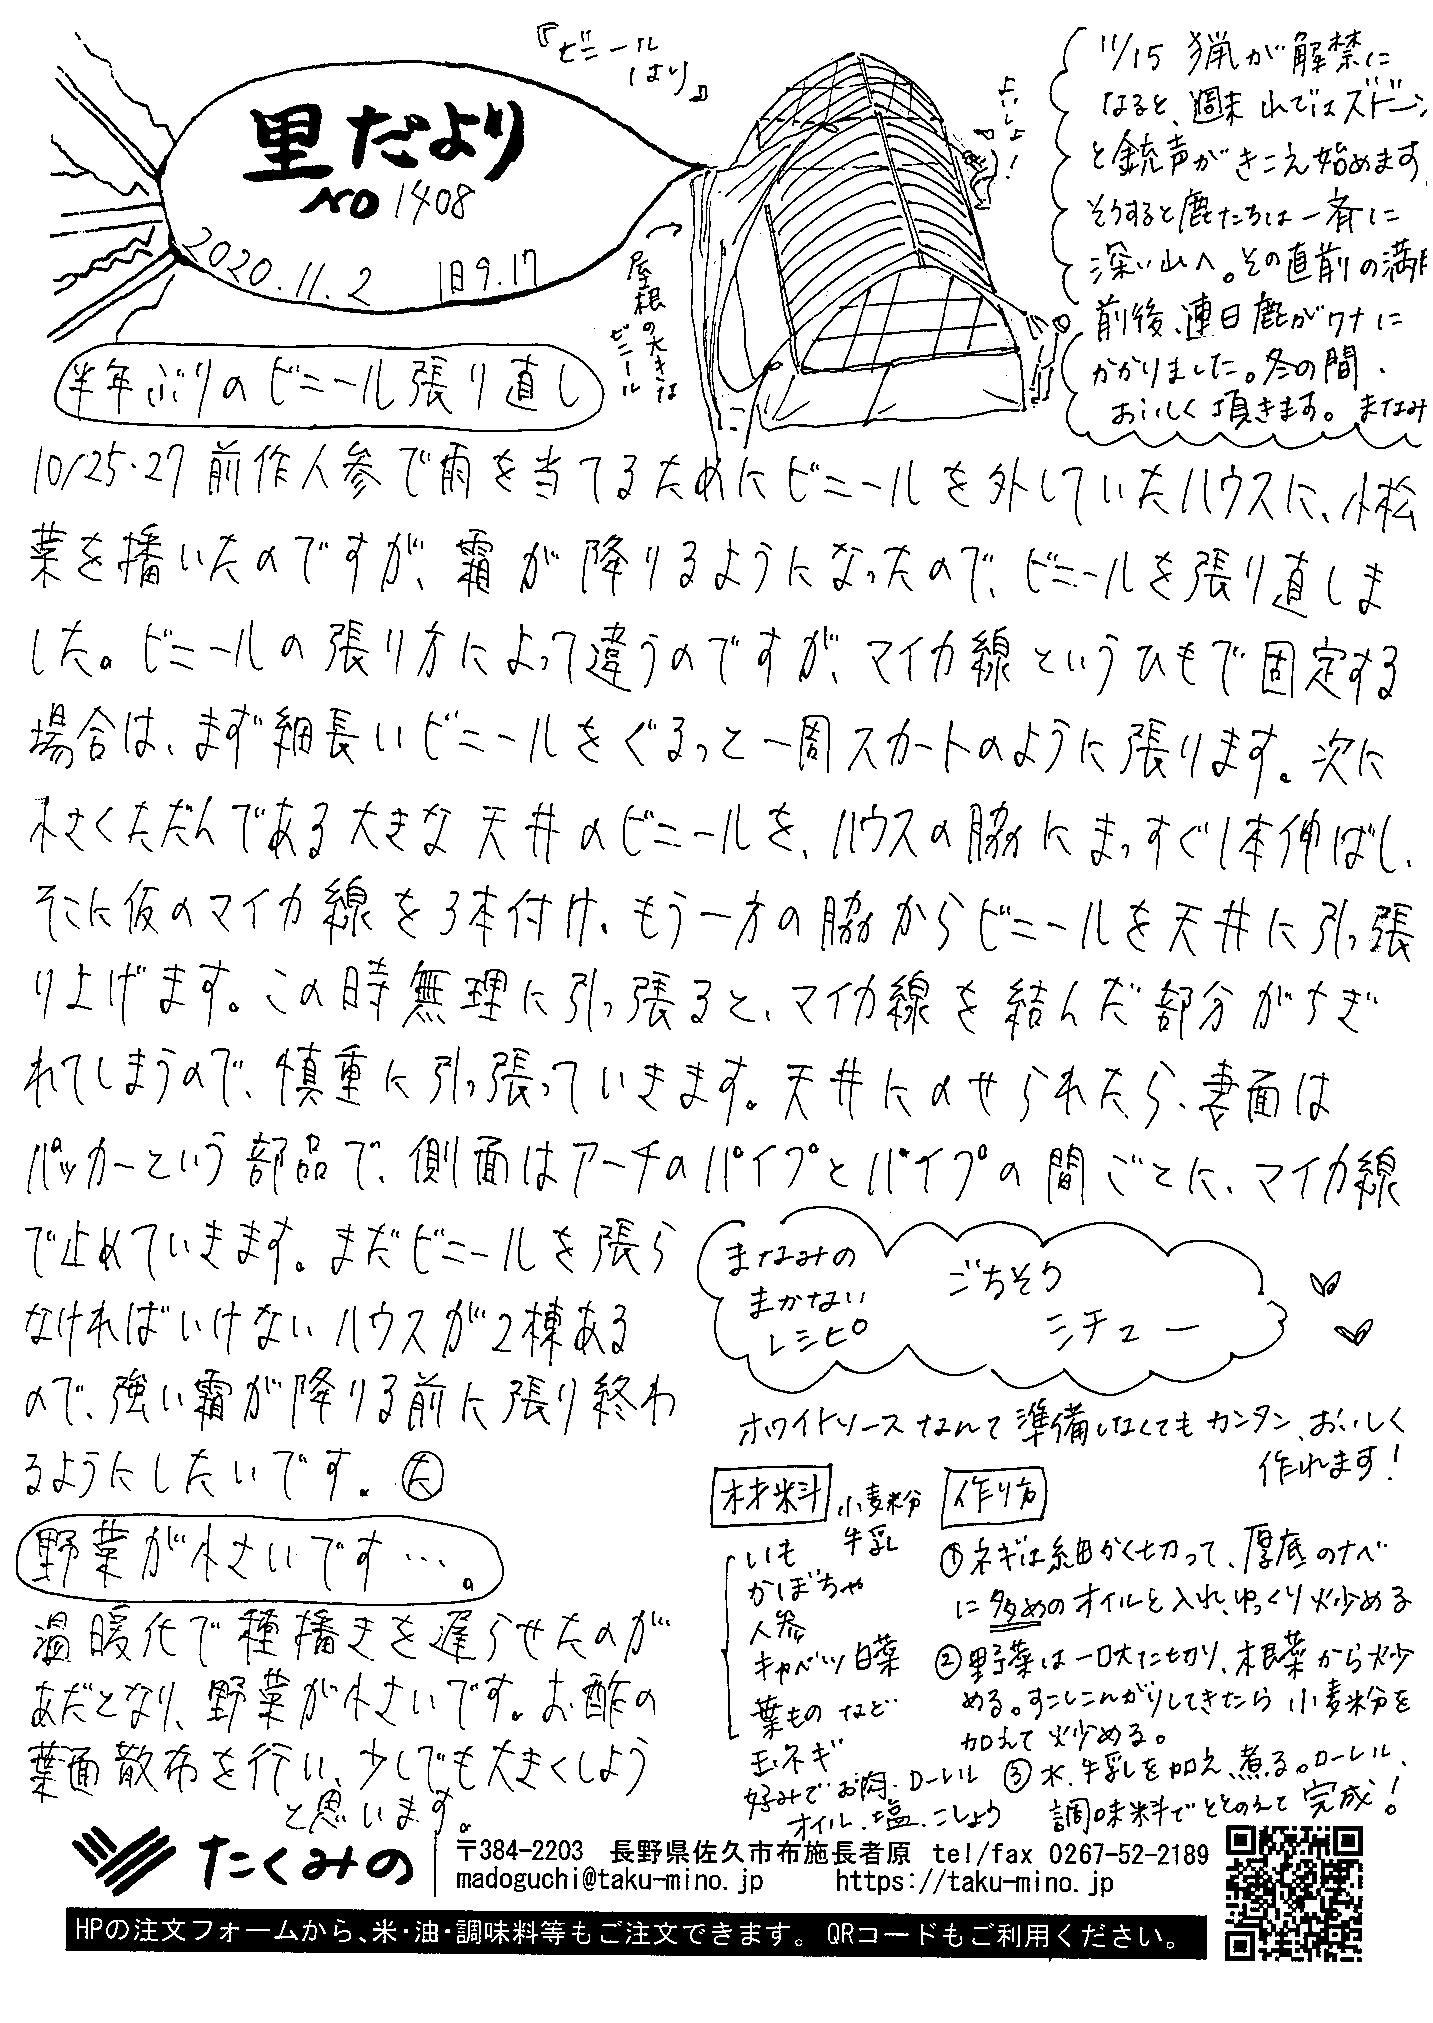 里だより
NO 1408
2020.11.2 旧9.17
『ビニール
はり』
よいしょ!
屋根の大きな
ビニール
11/15 猟が解禁に
なると、週末 山ではズドーン
と銃声がきこえ始めます。
そうすると鹿たちは一斉に
深い山へ。その直前の満月
前後、連日鹿がワナに
かかりました。冬の間、
おいしく頂きます。まなみ
半年ぶりのビニール張り直し
10/25・27 前作人参で雨を当てるためにビニールを外していたハウスに、小松
菜を播いたのですが、霜が降りるようになったので、ビニールを張り直しま
した。ビニールの張り方によって違うのですが、マイカ線というひもで固定する
場合は、まず細長いビニールをぐるっと一周スカートのように張ります。次に
小さくたたんである大きな天井のビニールを、ハウスの脇にまっすぐ1本伸ばし、
そこに仮のマイカ線を3本付け、もう一方の脇からビニールを天井に引っ張
り上げます。この時無理に引っ張ると、マイカ線を結んだ部分がちぎ
れてしまうので、慎重に引っ張っていきます。天井にのせられたら、妻面は
パッカーという部品で、側面はアーチのパイプとパイプの間ごとに、マイカ線
で止めていきます。まだビニールを張ら
なければいけないハウスが2棟ある
ので、強い霜が降りる前に張り終わ
るようにしたいです。㋟
野菜が小さいです…。
温暖化で種播きを遅らせたのが
あだとなり、野菜が小さいです。お酢の
葉面散布を行い、少しでも大きくしよう
と思います。
まなみの
まかない
レシピ
ごちそう
シチュー
ホワイトソースなんて準備しなくてもカンタン、おいしく
作れます!
材料
小麦粉
牛乳
いも
かぼちゃ
人参
キャベツ 白菜
葉もの など
玉ネギ
好みでお肉、ローレル
オイル、塩、こしょう
作り方
① ネギは細かく切って、厚底のナベ
に多めのオイルと入れ、ゆっくり炒める
② 野菜は一口大に切り、根菜から炒
める。すこしこんがりしてきたら小麦粉を
加えて炒める。
③ 水、牛乳を加え、煮る。ローレル、
調味料でととのえて完成!
たくみの
〒384-2203 長野県佐久市布施長者原 tel/fax 0267-52-2189
madoguchi@taku-mino.jp https://taku-mino.jp
HPの注文フォームから、米・油・調味料等もご注文できます。 QRコードもご利用ください。